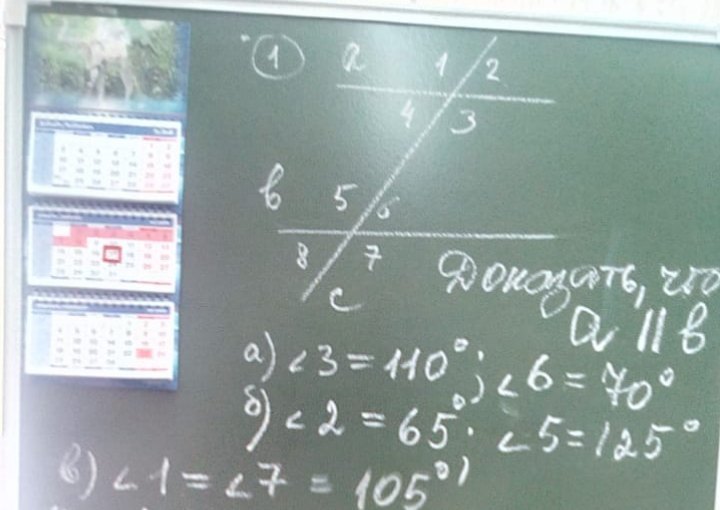 1 a 1 2
4 3
в 5 6
8 7
с
Доказать, что
a || в
а) ∠3 = 110°; ∠6 = 70°
б) ∠2 = 65°; ∠5 = 125°
в) ∠1 = ∠7 = 105°